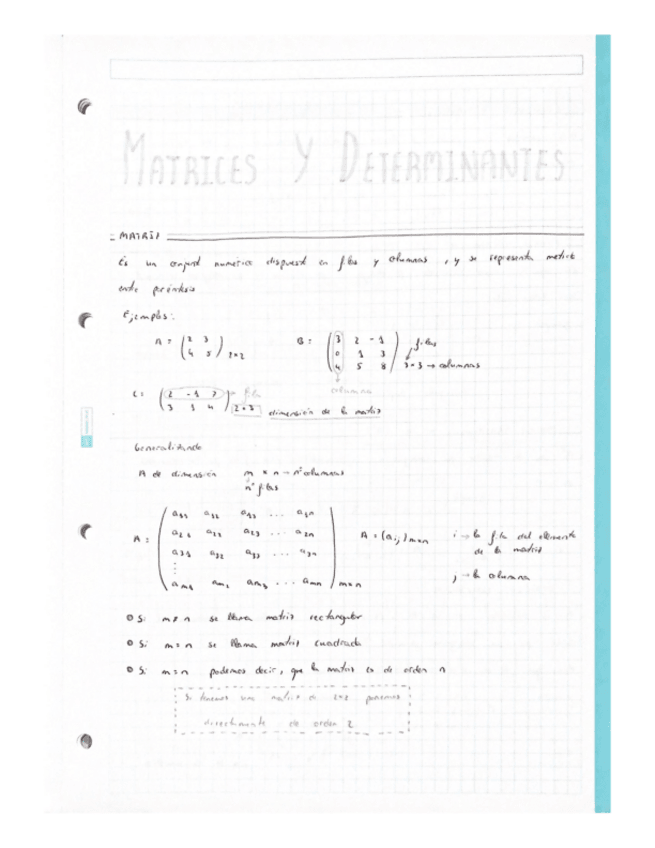 MATRICES Y DETERMINANTES
MATRIZ
Es un conjunt numerico dispuest en filas y columnas, y se representa metido
entre paréntesis
Ejemplos:
A = (2 3 / 4 5) 2×2 B = (3 2 -1 / 0 1 3 / 4 5 8) 3×3 → columnas
filas
columna
C = (2 -1 7 / 3 1 4) 2×3 → fila
dimensión de la matriz
Generalizando
A de dimensión m × n → nº columnas
nº filas
A = (a11 a12 a13 ... a1n / a21 a22 a23 ... a2n / a31 a32 a33 ... a3n / ⋮ / am1 am2 am3 ... amn) m×n A = (aij) m×n i → la fila del elemento
de la matriz
j → la columna
Si m ≠ n se llama matriz rectangular
Si m = n se llama matriz cuadrada
Si m = n podemos decir, que la matriz es de orden n
Si tenemos una matriz de 2×2 ponemos
directamente de orden 2